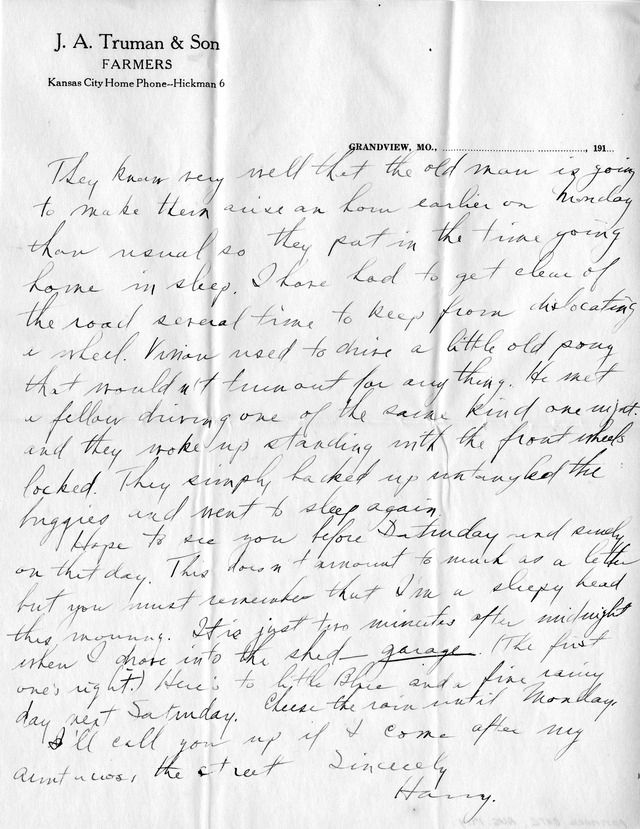 J. A. Truman & Son
FARMERS
Kansas City Home Phone--Hickman 6
GRANDVIEW, MO., ............................................, 191...
They know very well that the old man is going
to make them arise an hour earlier on Monday
than usual so they put in the time going
home in sleep. I have had to get clear of
the road several time to keep from dislocating
a wheel. Vivian used to drive a little old pony
that wouldn't turn out for anything. He met
a fellow driving one of the same kind one night.
and they woke up standing with the front wheels
locked. They simply backed up untangled the
buggies and went to sleep again.
Hope to see you before Saturday and surely
on that day. This doesn't amount to much as a letter
but you must remember that I'm a sleepy head
this morning. It is just two minutes after midnight
when I drove into the shed - garage. (The first
one's right.) Here's to little Blue and a fine rainy
day next Saturday. Cheese the rain until Monday.
I'll call you up if I come after my
aunt across the street Sincerely
Harry.